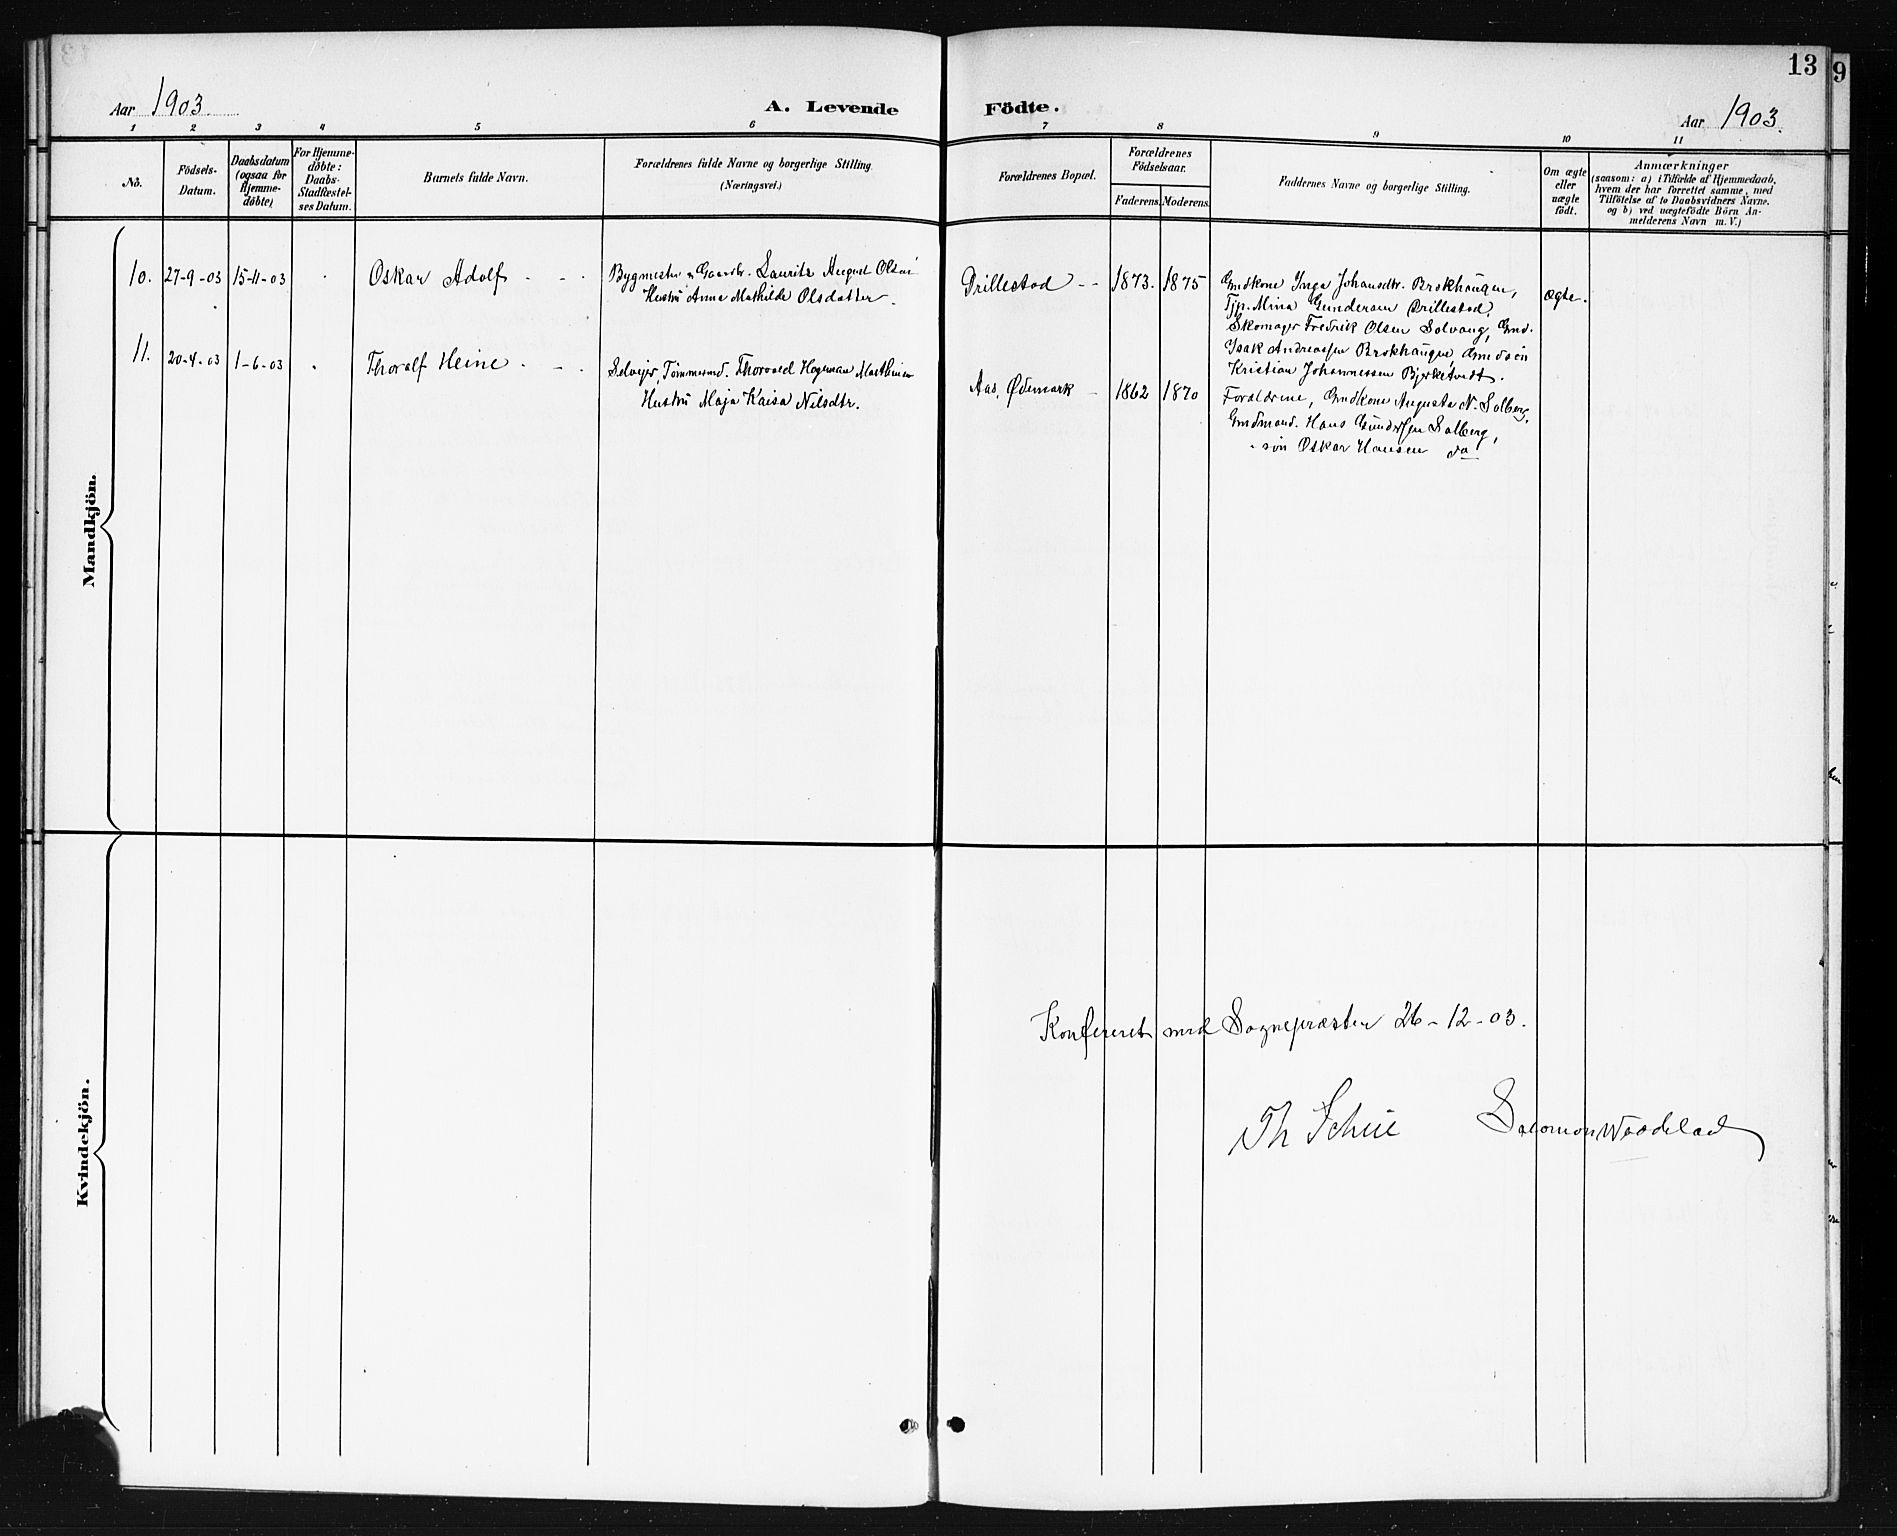 13
9
Aar 1903.
A. Levende
Födte.
Aar 1903.
1 2 3 4 5 6 7 8 9 10 11
No.
Födsels-
Datum.
Daabsdatum
(ogsaa for
Hjemme-
döbte)
For Hjemme-
döbte:
Daabs-
Stadfæstel-
ses Datum.
Barnets fulde Navn.
Forældrenes fulde Navne og borgerlige Stilling.
(Næringsvei.)
Forældrenes Bopæl.
Forældrenes
Födselsaar.
Faderens.
Moderens.
Faddernes Navne og borgerlige Stilling.
Om ægte
eller
uægte
födt.
Anmærkninger
(saasom: a) i Tilfælde af Hjemmedaab,
hvem der har forrettet samme, med
Tilföielse af to Daabsvidners Navne.
og b) ved uægtefödte Börn An-
melderens Navn m. V.)
Mandkjön.
10.
27-9-03
15-11-03
Oskar Adolf
Bygmester & Gaardbr. Laurits August Olsen
Hustru Anna Mathilde Olsdatter
Drillestad
1873.
1875
Gmdkone Inga Johansdtr. Brokhaugen,
Tjp. Mina Gundersen Drillestad,
Skomager Fredrik Olsen Solvang, Gmd.
Isak Andreassen Brokhaugen Gmdssön
Kristian Johannessen Bjerketvedt.
ægte.
11.
20-4-03
1-6-03
Thoralf Heine
Selveier, Tømmermd. Thorvald Hageman Mathisen
Hustru Maja Kaisa Nilsdtr.
Aas, Ødemark
1862
1870
Forældrene, Gmdkone Augusta N. Solberg,
Gmdmand. Hans Gundersen Solberg,
- søn Oskar Hansen do
Kvindekjön.
Konfereret med Sognepræsten 26-12-03.
Th Schie
Salomon